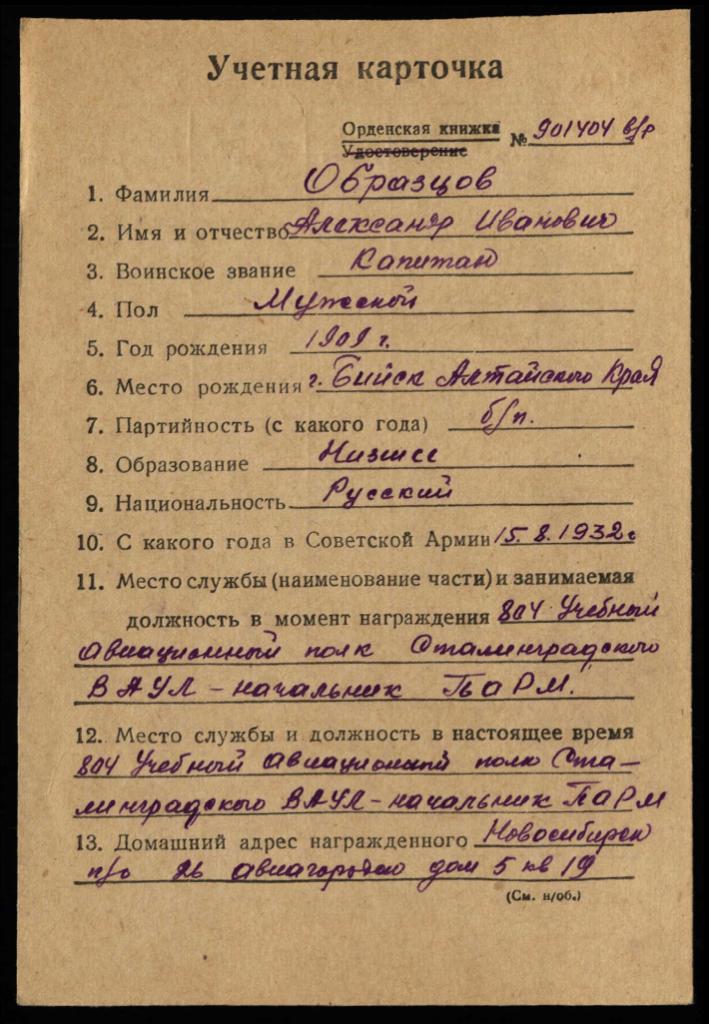 Учетная карточка
Орденская книжка
Удостоверение № 901404 в/р
1. Фамилия Образцов
2. Имя и отчество Александр Иванович
3. Воинское звание Капитан
4. Пол Мужской
5. Год рождения 1909 г.
6. Место рождения г. Бийск Алтайского Края
7. Партийность (с какого года) б/п.
8. Образование Низшее
9. Национальность Русский
10. С какого года в Советской Армии 15.8.1932 г
11. Место службы (наименование части) и занимаемая
должность в момент награждения 804 Учебный
авиационный полк Сталинградского
ВАУЛ – начальник ПАРМ.
12. Место службы и должность в настоящее время
804 Учебный авиационный полк Ста-
линградского ВАУЛ – начальник ПАРМ
13. Домашний адрес награжденного Новосибирск
п/о 26 авиагородок дом 5 кв 19
(См. н/об.)